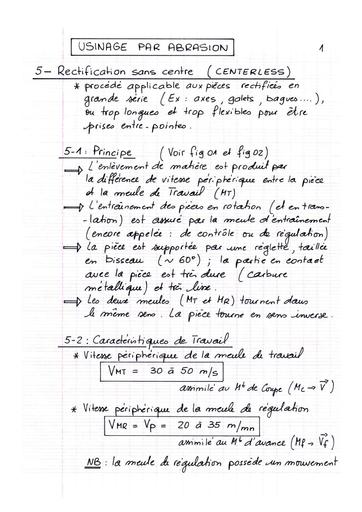 USINAGE PAR ABRASION
1
5- Rectification sans centre (CENTERLESS)
* procédé applicable aux pièces rectifiées en
grande série (Ex : axes, galets, bagues....),
ou trop longues et trop flexibles pour être
prises entre-pointes.
5-1 : Principe (Voir fig 01 et fig 02)
⇒ L'enlèvement de matière est produit par
la différence de vitesse périphérique entre la pièce
et la meule de Travail (MT)
⇒ L'entraînement des pièces en rotation (et en trans-
-lation) est assuré par la meule d'entraînement
(encore appelée : de contrôle ou de régulation)
⇒ La pièce est supportée par une réglette, taillée
en biseau (~ 60°) ; la partie en contact
avec la pièce est très dure (carbure
métallique) et très lisse.
⇒ Les deux meules (MT et MR) tournent dans
le même sens. La pièce tourne en sens inverse.
5-2 : Caractéristiques de Travail
* Vitesse périphérique de la meule de travail
VMT = 30 à 50 m/s
assimilé au Mt de Coupe (Mc → V⃗)
* Vitesse périphérique de la meule de régulation
VMR = Vp = 20 à 35 m/mn
assimilé au Mt d'avance (Mf → V⃗f)
NB : la meule de régulation possède un mouvement